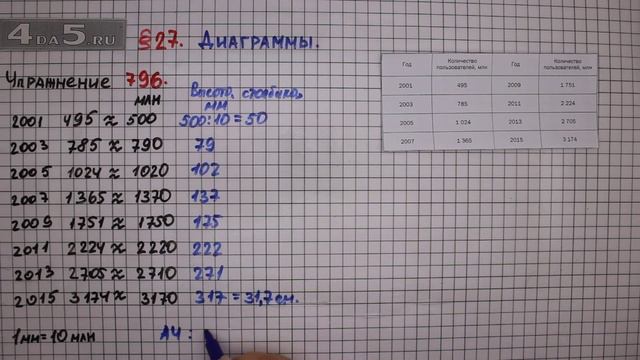 4DA5.RU
§ 27. Диаграммы.
Упражнение 796.
млн Высота столбика, мм
2001 495 ≈ 500 500:10=50
2003 785 ≈ 790 79
2005 1024 ≈ 1020 102
2007 1365 ≈ 1370 137
2009 1751 ≈ 1750 175
2011 2224 ≈ 2220 222
2013 2705 ≈ 2710 271
2015 3174 ≈ 3170 317 = 31,7 см.
1мм=10 млн А4 :
Год Количество пользователей, млн Год Количество пользователей, млн
2001 495 2009 1 751
2003 785 2011 2 224
2005 1 024 2013 2 705
2007 1 365 2015 3 174